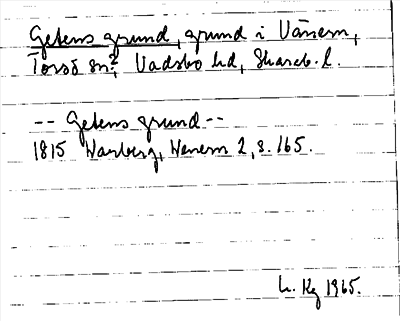 Getens grund, grund i Vänern,
Torsö sn?, Vadsbo hd, Skarab. l.
-- Getens grund --
1815 Warberg, Wenern 2, s. 165.
L. Kg 1965.